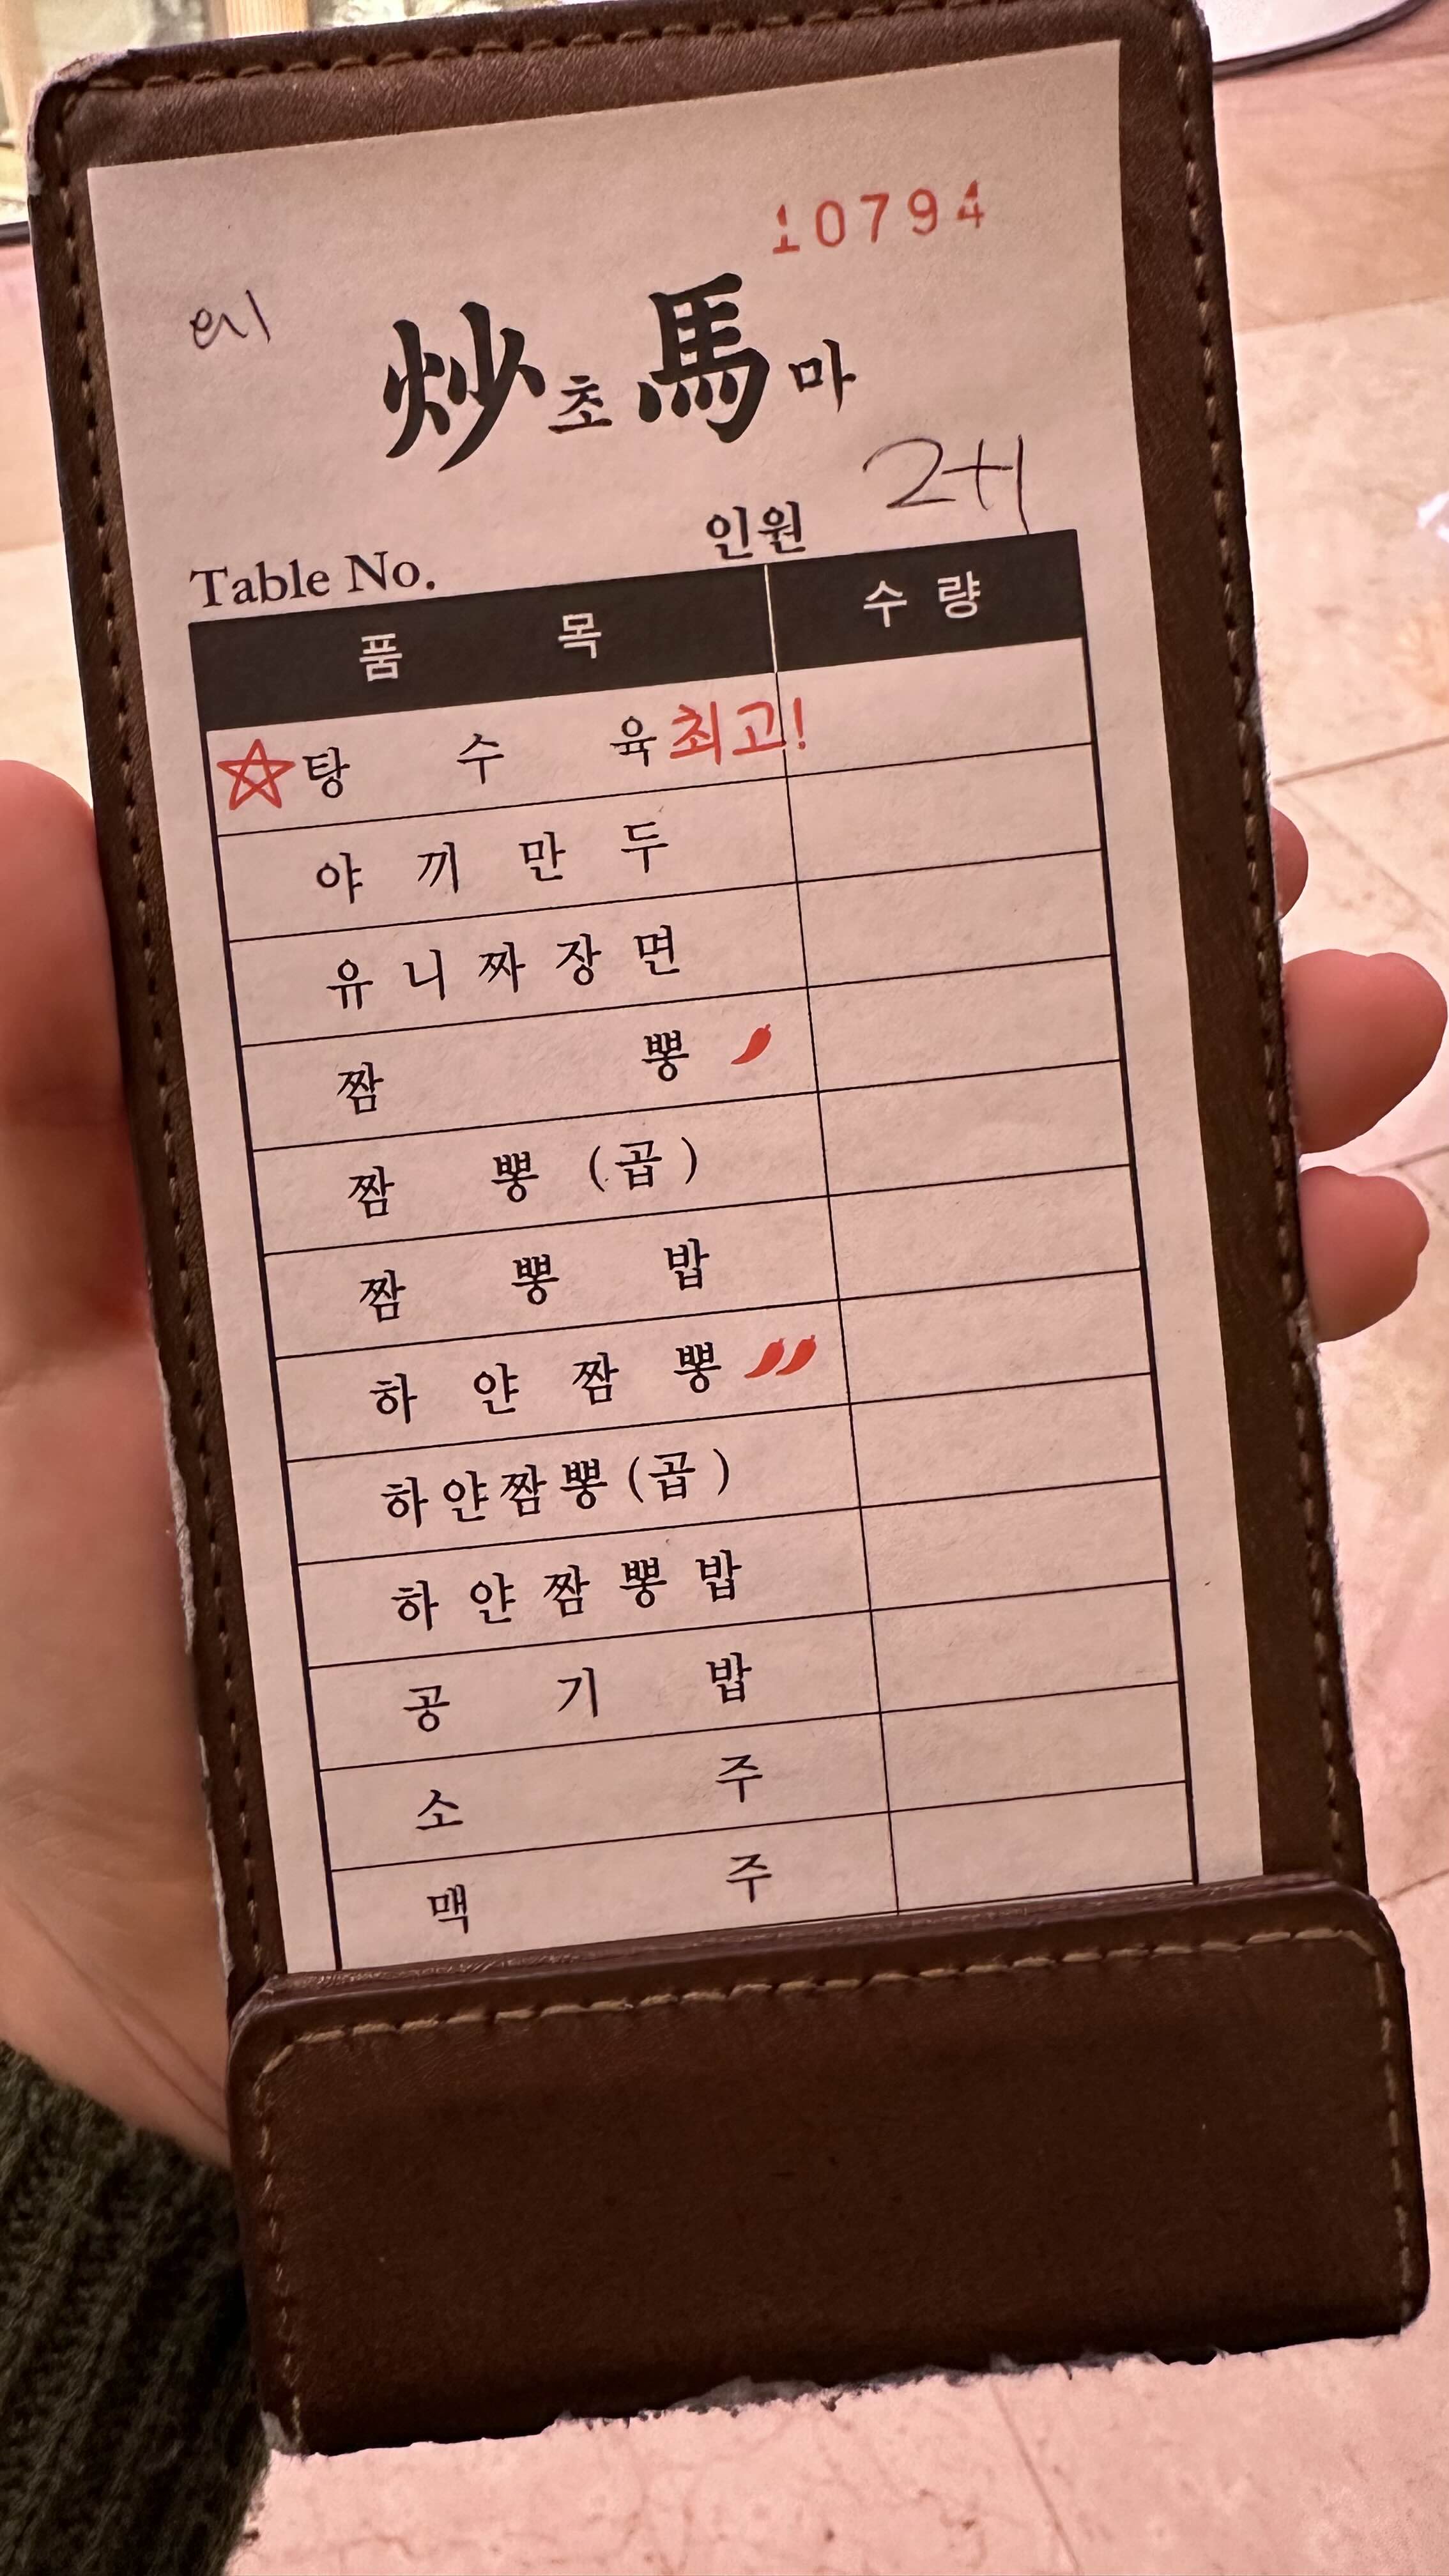 10794
炒초馬마
2+1
Table No. 인원
품목 수량
탕수육 최고!
야끼만두
유니짜장면
짬뽕
짬뽕(곱)
짬뽕밥
하얀짬뽕
하얀짬뽕(곱)
하얀짬뽕밥
공기밥
소주
맥주